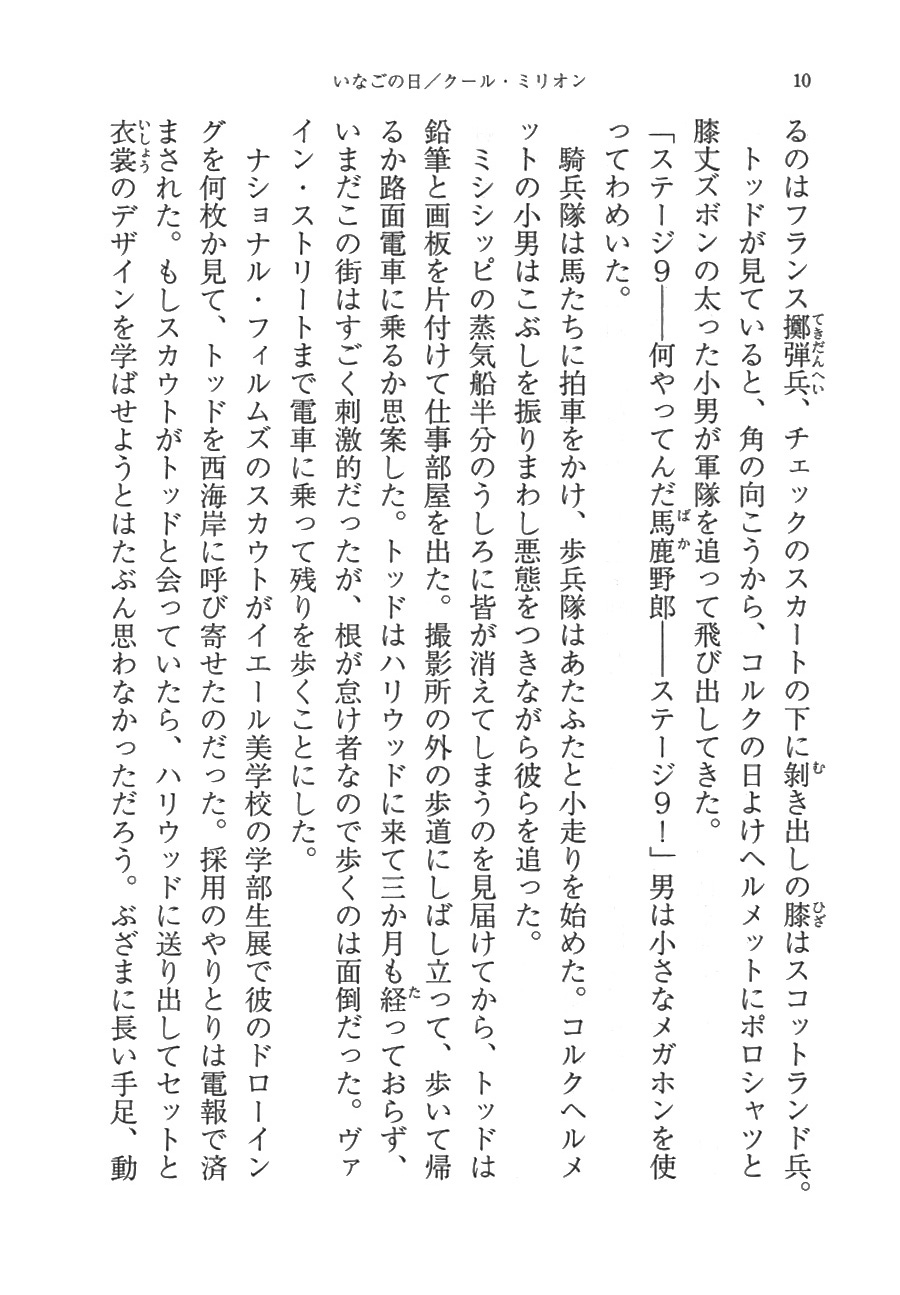 いなごの日／クール・ミリオン
10
るのはフランス擲弾兵、チェックのスカートの下に剝き出しの膝はスコットランド兵。
トッドが見ていると、角の向こうから、コルクの日よけヘルメットにポロシャツと
膝丈ズボンの太った小男が軍隊を追って飛び出してきた。
「ステージ９――何やってんだ馬鹿野郎――ステージ９！」男は小さなメガホンを使
ってわめいた。
騎兵隊は馬たちに拍車をかけ、歩兵隊はあたふたと小走りを始めた。コルクヘルメ
ットの小男はこぶしを振りまわし悪態をつきながら彼らを追った。
ミシシッピの蒸気船半分のうしろに皆が消えてしまうのを見届けてから、トッドは
鉛筆と画板を片付けて仕事部屋を出た。撮影所の外の歩道にしばし立って、歩いて帰
るか路面電車に乗るか思案した。トッドはハリウッドに来て三か月も経っておらず、
いまだこの街はすごく刺激的だったが、根が怠け者なので歩くのは面倒だった。ヴァ
イン・ストリートまで電車に乗って残りを歩くことにした。
ナショナル・フィルムズのスカウトがイエール美学校の学部生展で彼のドローイン
グを何枚か見て、トッドを西海岸に呼び寄せたのだった。採用のやりとりは電報で済
まされた。もしスカウトがトッドと会っていたら、ハリウッドに送り出してセットと
衣裳のデザインを学ばせようとはたぶん思わなかっただろう。ぶざまに長い手足、動